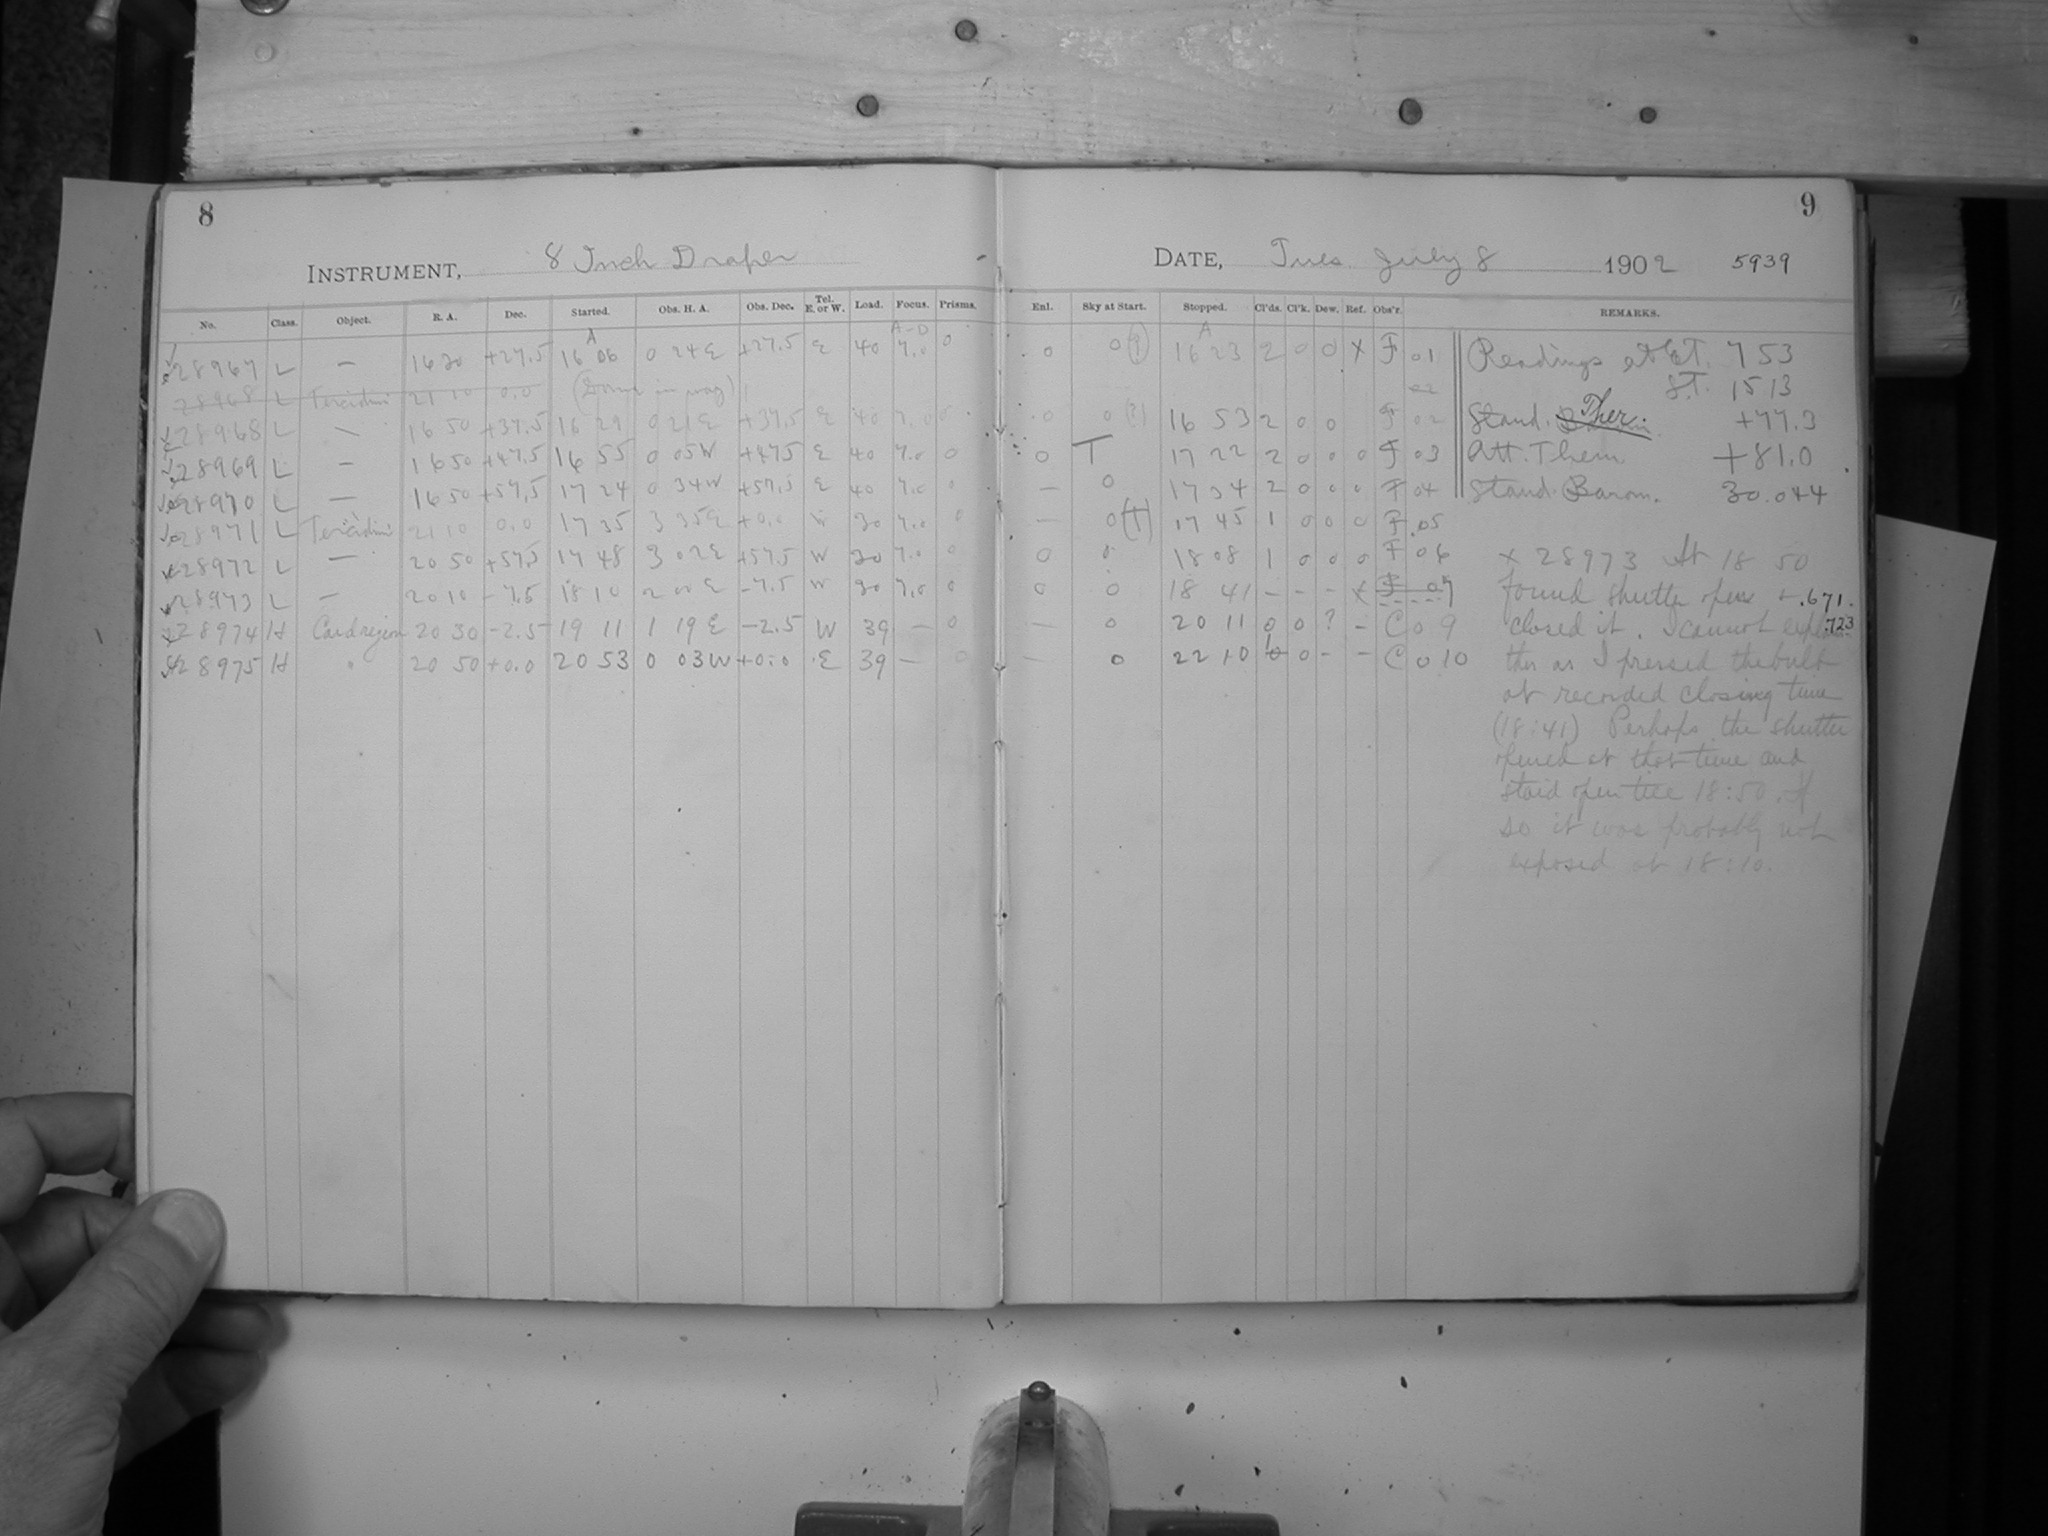 8
INSTRUMENT, 8 Inch Draper
No. Class. Object. R. A. Dec. Started. Obs. H. A. Obs. Dec. Tel. E. or W. Load. Focus. Prisms.
A A-D
28967 L — 16 20 +27.5 16 06 0 24 E +27.5 E 40 7.0 0
28968 L 21 10 0.0 (Dome in way)
28968 L — 16 50 +37.5 16 29 0 21 E +37.5 E 40 7.0 0
28969 L — 16 50 +47.5 16 55 0 05 W +47.5 E 40 7.0 0
28970 L — 16 50 +57.5 17 24 0 34 W +57.5 E 40 7.0 0
28971 L 21 10 0.0 17 35 3 35 E +0.0 W 30 7.0 0
28972 L — 20 50 +57.5 17 48 3 02 E +57.5 W 30 7.0 0
28973 L — 20 10 -7.5 18 10 2 00 E -7.5 W 30 7.0 0
28974 H Card region 20 30 -2.5 19 11 1 19 E -2.5 W 39 — 0
28975 H " 20 50 +0.0 20 53 0 03 W +0.0 E 39 — 0
9
DATE, Tues. July 8 1902 5939
Enl. Sky at Start. Stopped. Cl'ds. Cl'k. Dew. Ref. Obs'r. REMARKS.
A
0 0 (?) 16 23 2 0 0 x F 01
02
0 0 (?) 16 53 2 0 0 F 02
0 T 17 22 2 0 0 0 F 03
— 0 17 34 2 0 0 0 F 04
— 0 (T) 17 45 1 0 0 0 F 05
0 0 18 08 1 0 0 0 F 06
0 0 18 41 - - - x F 07
— 0 20 11 0 0 ? - C 0 9
— 0 22 10 0 - - C 0 10
Readings at 7 53
S.T. 15 13
Stand. Ther. +77.3
Att. Therm +81.0
Stand. Barom. 30.044
x 28973 At 18 50
found shutter open + .671
closed it. I cannot explain .723
this as I pressed the bulb
at recorded closing time
(18:41) Perhaps the shutter
opened at that time and
staid open till 18:50. If
so it was probably not
exposed at 18:10.